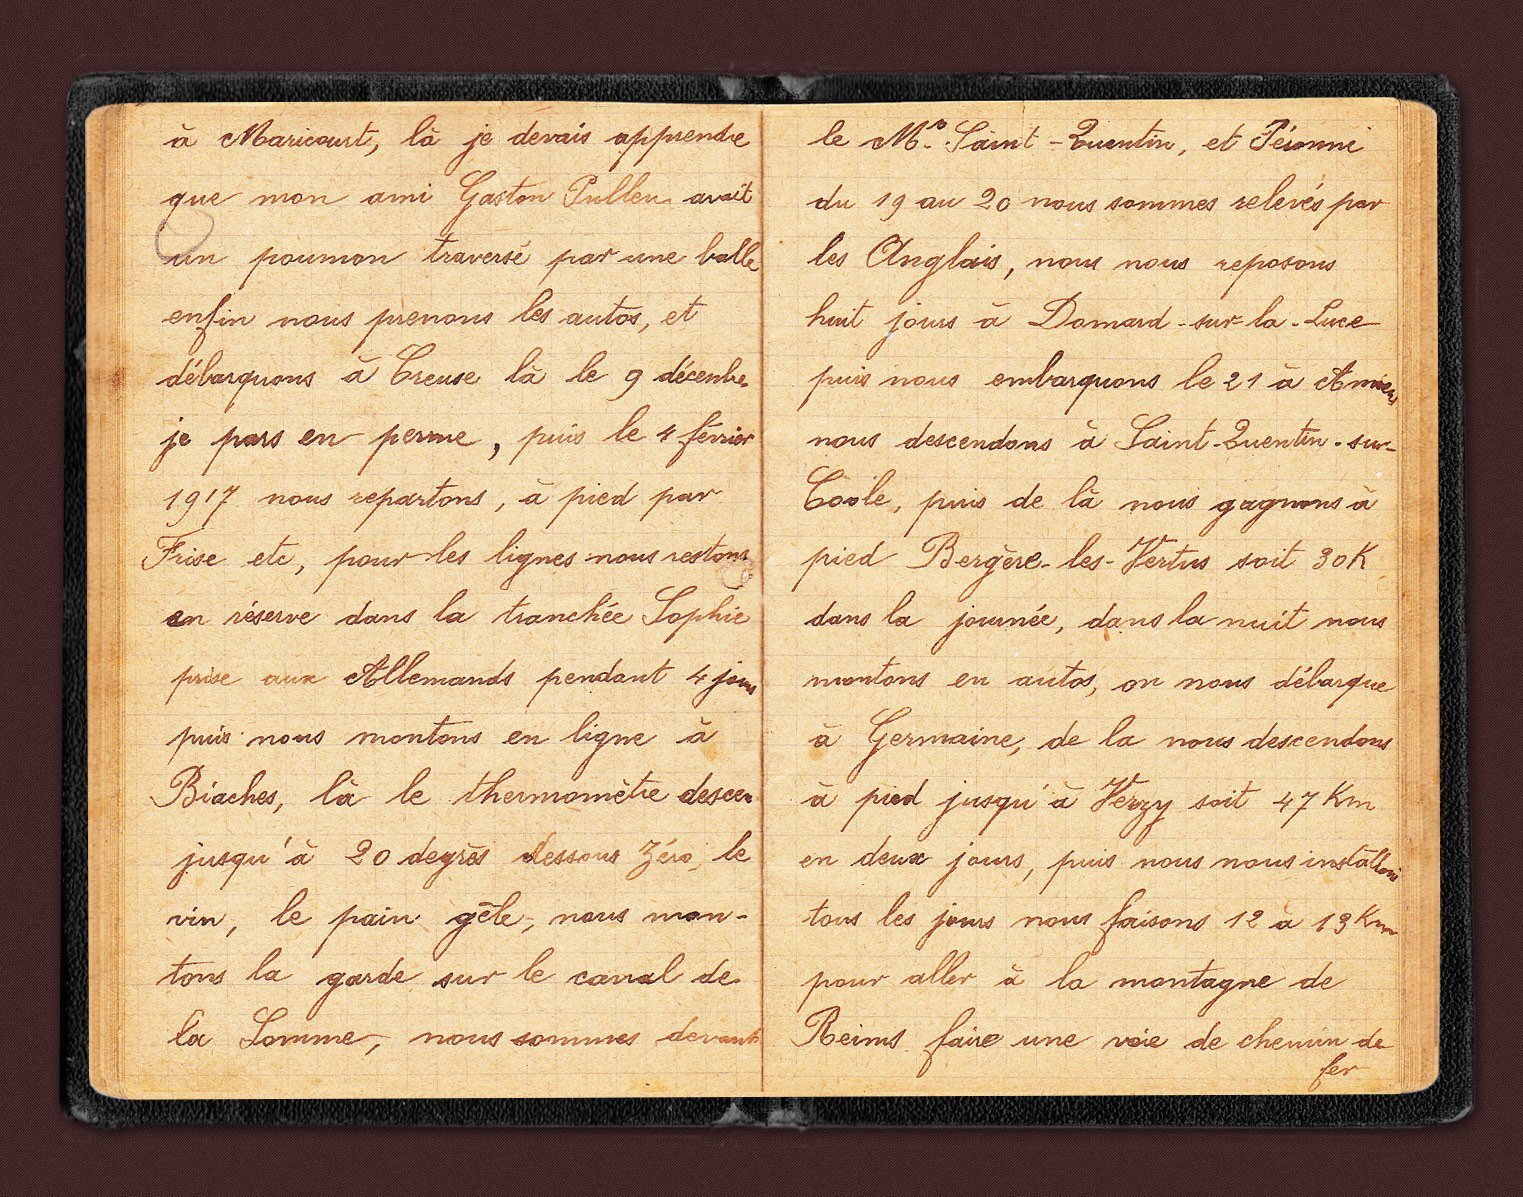 à Maricourt, là je devais apprendre
que mon ami Gaston Pulleu avait
un poumon traversé par une balle
enfin nous prenons les autos, et
débarquons à Creuse là le 9 décembre
je pars en perme, puis le 4 février
1917 nous repartons, à pied par
Frise etc, pour les lignes nous restons
en réserve dans la tranchée Sophie
prise aux Allemands pendant 4 jours
puis nous montons en ligne à
Biaches, là le thermomètre descen
jusqu'à 20 degrès dessous Zéro, le
vin, le pain gêle, nous mon-
tons la garde sur le canal de
la Somme, nous sommes devant
le Mt. Saint-Quentin, et Péronne
du 19 au 20 nous sommes relevés par
les Anglais, nous nous reposons
huit jours à Domard-sur-la-Luce
puis nous embarquons le 21 à Amiens
nous descendons à Saint-Quentin-sur-
Coole, puis de là nous gagnons à
pied Bergère-les-Vertus soit 30K
dans la journée, dans la nuit nous
montons en autos, on nous débarque
à Germaine, de la nous descendons
à pied jusqu'à Verzy soit 47 Km
en deux jours, puis nous nous installons
tous les jours nous faisons 12 à 13 Km
pour aller à la montagne de
Reims faire une voie de chemin de
fer